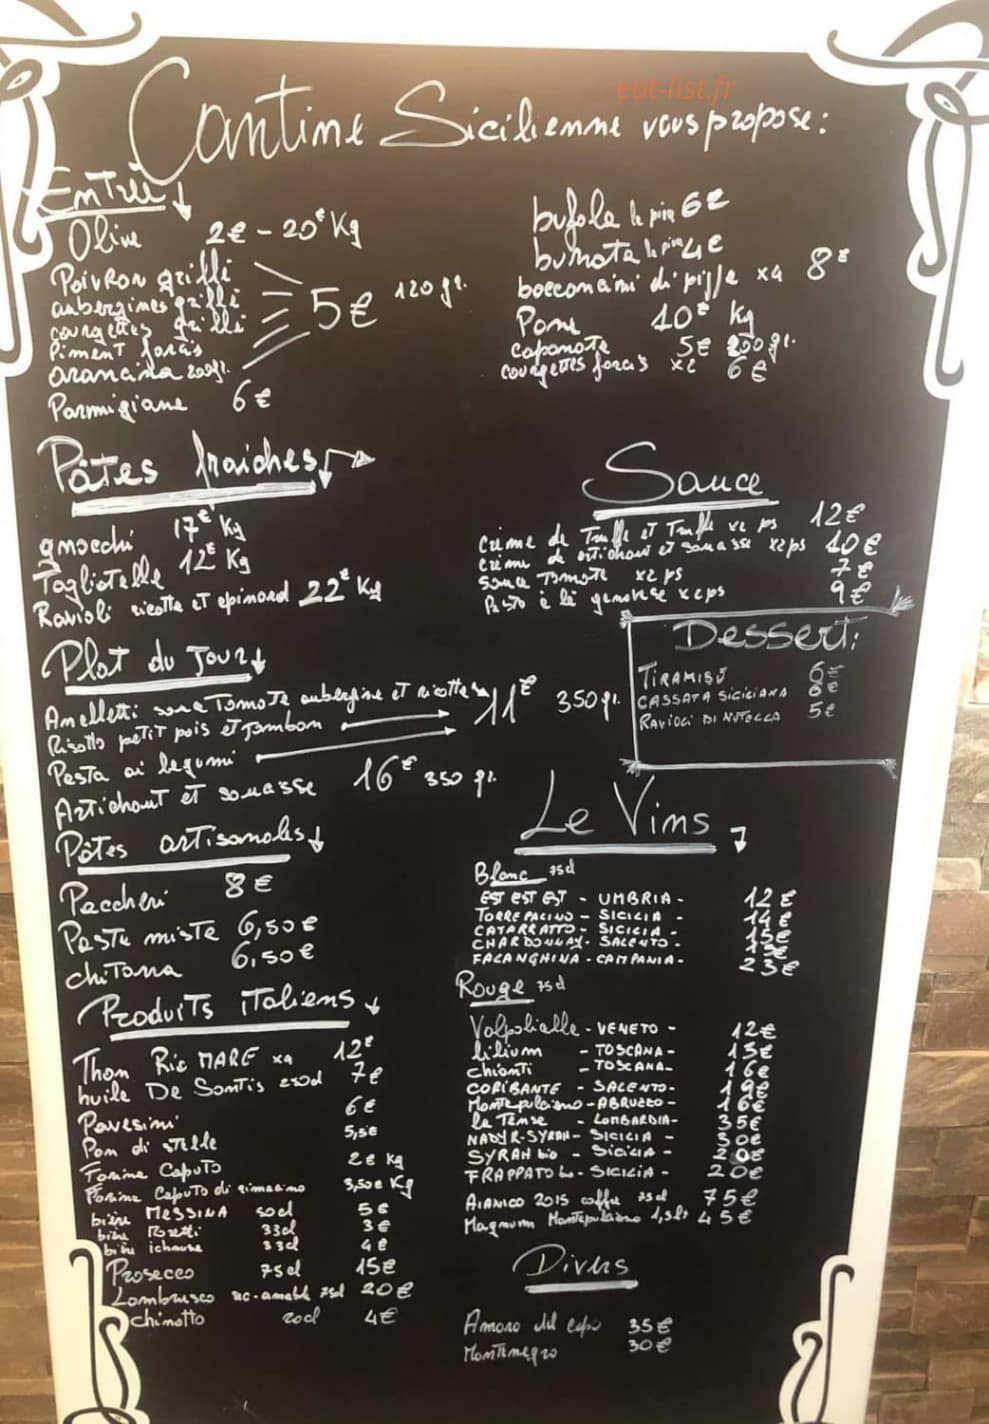 eat-list.fr
Cantine Sicilienne vous propose:
Entrée
Olive 2€ - 20€ Kg
Poivron grillé
aubergines grillé
courgettes grillé
Piment farcis
arancina 200gr.
5€ 120gr.
Parmigiana 6€
bufala la pièce 6€
burrata la pièce 4€
bocconcini di x4 8€
Pane 10€ Kg
caponata 5€ 200gr.
courgettes farcis x2 6€
Pâtes fraiches
gnocchi 17€ Kg
Tagliatelle 12€ Kg
Ravioli ricotta et epinard 22€ Kg
Sauce
crème de Truffe et Truffe x2 ps 12€
crème de artichaut et x2ps 10€
sauce Tomate x2 ps 7€
Pesto à la genovese x2ps 9€
Plat du Jour
Anelletti sauce Tomate aubergine et ricotta 11€ 350gr.
Risotto petit pois et Jambon
Pasta ai legumi
Artichaut et 16€ 350 gr.
Dessert:
TIRAMISÙ 6€
CASSATA SICILIANA 6€
RAVIOLI DI NUTELLA 5€
Pâtes artisanales
Paccheri 8€
Pasta miste 6,50€
chitarra 6,50€
Produits italiens
Thon Ric MARE x4 12€
huile De Santis 250cl 7€
Pavesini 6€
Pan di stelle 5,5€
Farina Caputo 2€ Kg
Farina Caputo di 3,50€ Kg
bière MESSINA 50cl 5€
bière 33cl 3€
bière ichnusa 33cl 4€
Prosecco 75cl 15€
Lambrusco sec-amabile 75cl 20€
chinotto 20cl 4€
Le Vins
Blanc 75cl
EST EST EST - UMBRIA - 12€
TORRE - SICILIA - 14€
CATARRATTO - SICILIA - 15€
CHARDONNAY - SALENTO -
FALANGHINA - CAMPANIA - 23€
Rouge 75cl
Valpolicella - VENETO - 12€
Lilium - TOSCANA - 13€
Chianti - TOSCANA - 16€
CORIBANTE - SALENTO - 19€
Montepulciano - ABRUZZO - 16€
la Tense - LOMBARDIA - 35€
NADIR-SYRAH - SICILIA - 30€
SYRAH bio - SICILIA - 20€
FRAPPATO bio - SICILIA - 20€
AGLIANICO 2015 75cl 75€
Magnum Montepulciano 1,5lt 45€
Divers
Amaro del capo 35€
Montenegro 30€